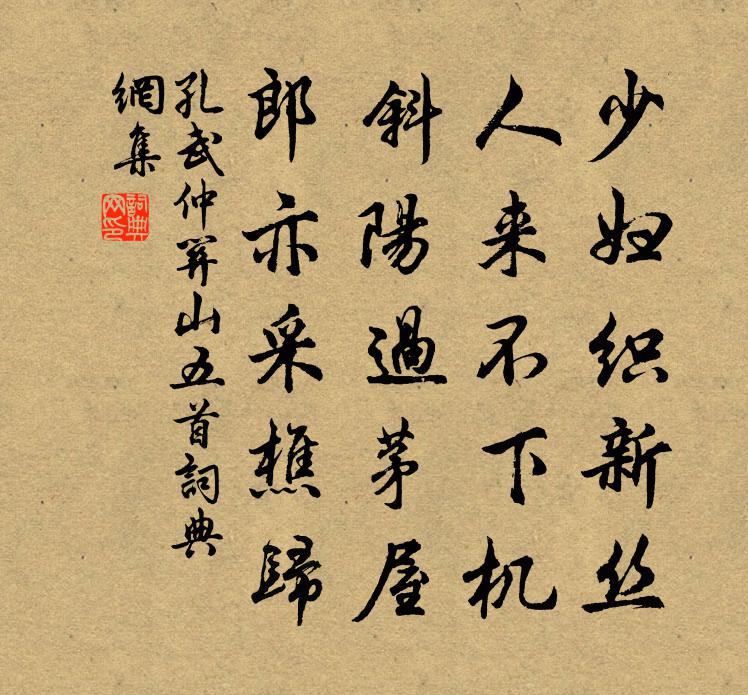 少妇织新丝
人来不下机
斜陽過茅屋
郎亦采樵歸
孔武仲羿山五首詞典
網集
詞典网印